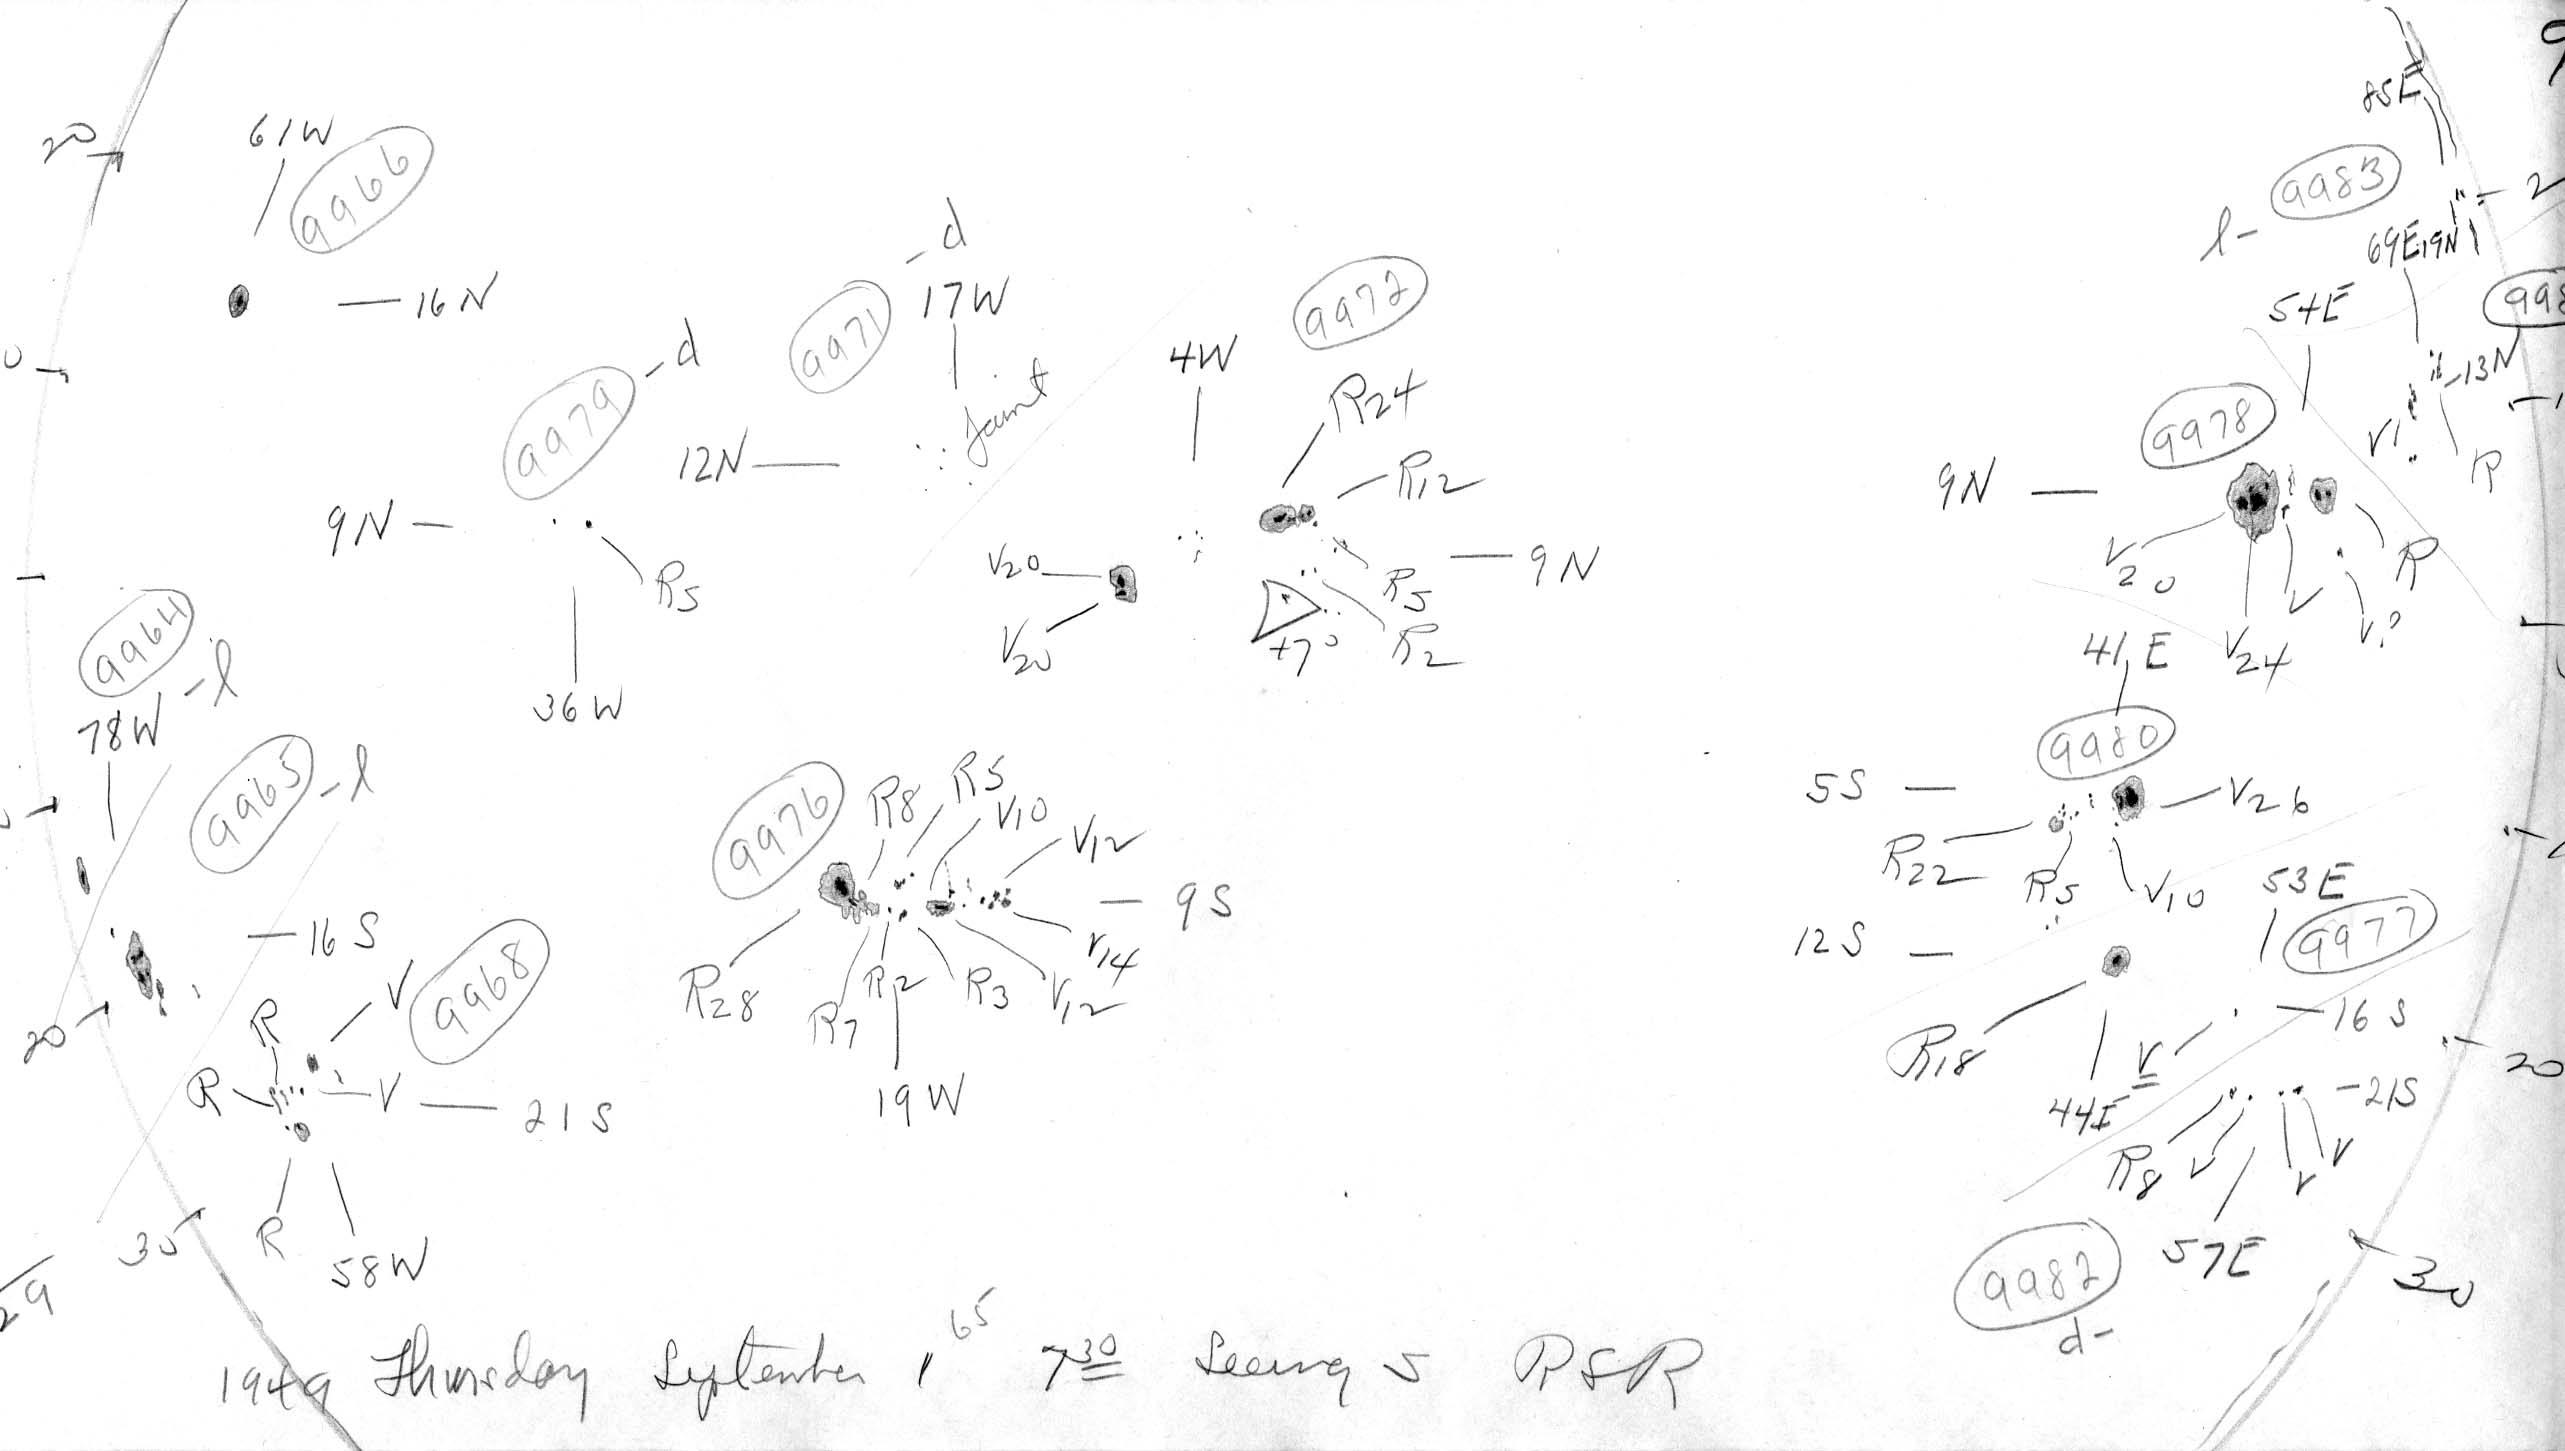 85E
20
61W
9966
9983
l-
2
-d
69E,19N
16N
17W
9972
54E
0
9979
-d
9971
4W
-13N
R24
9978
V
12N
faint
R12
R
9N
9N
9N
V20
R5
R5
R
V
20
V
V?
9964
-l
V20
+7°
R2
41E
V24
78W
36W
9980
9965
-l
9976
R8
R5
V10
V12
5S
V26
R22
R5
V10
53E
16S
9S
9977
12S
V14
V
9968
R28
R7
R2
R3
V12
R
16S
20
R18
V
20
R
V
21S
19W
44E
-21S
R8
V
V
V
R
30
58W
9982
57E
30
29
d-
65
1949 Thursday September 1 7 30 Seeing 5 RSR